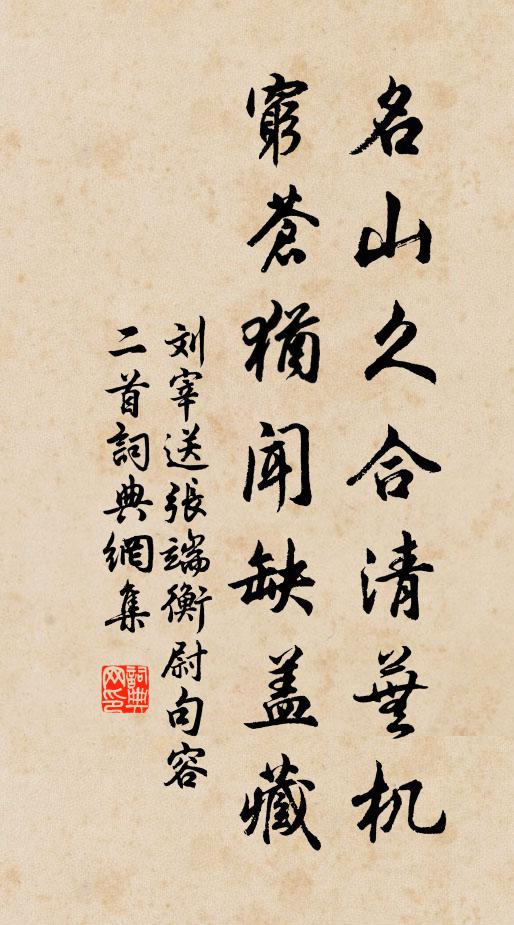 名山久合清芜机
窮苍犹闻缺盖藏
刘宰送張端衡尉句容
二首詞典網集
詞典网印